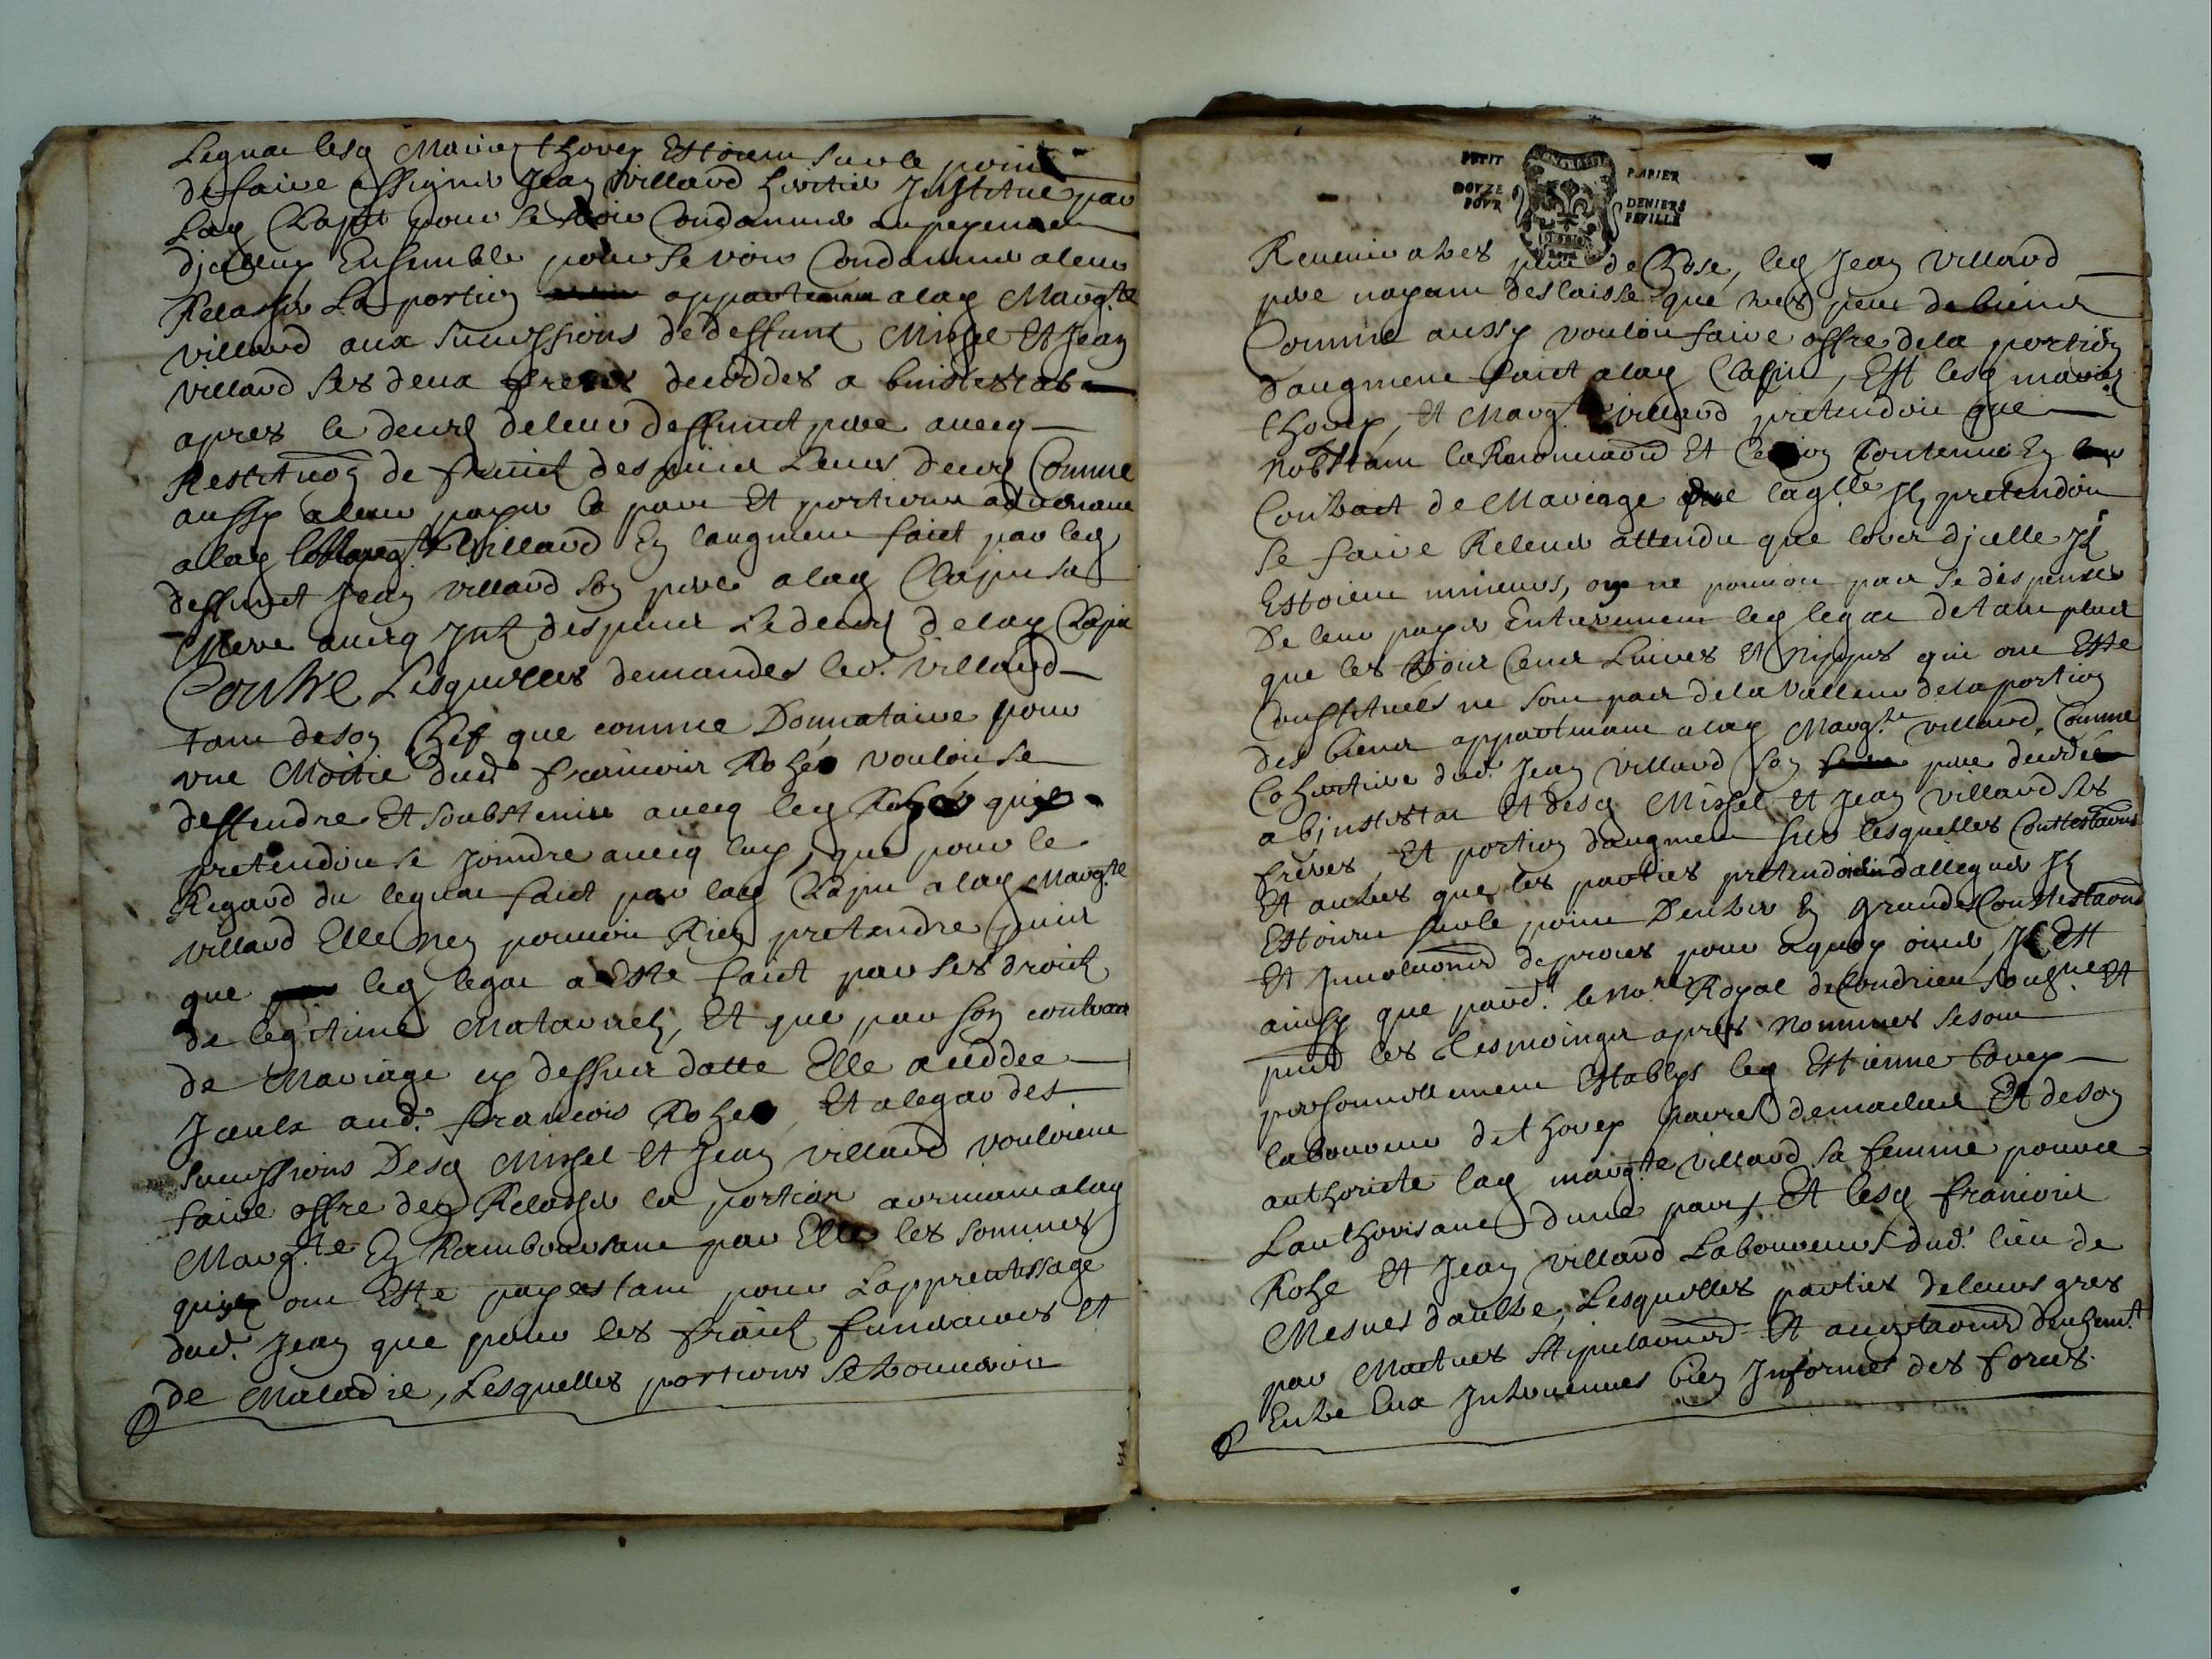 Legnac lesq Mariez thovex Estoient sur le point
de faire assigner Jean Villard heritier Institue par
Lad Clapit pour se voir Condamner au payement
djcelluy Ensemble pour se voir Condamner a leur
Relasher La portion appartenant a lad Margte
villard aux successions de deffunt Michel Et Jean
villard ses deux freres deceddes a bintestat
apres le deced de leur deffunct pere avecq
Restituon de fruict despuis Leurs deced Comme
aussy a leur payer la part Et portion advenant
a lad Margte Villard En laugment faict par led
deffunct Jean villard son pere a lad Clapit sa
Mere avecq Int despuis Le deced de lad Clapit
Contre Lesquelles demandes led. villard
tant de son Chef que comme Donnataire pour
une Moitie dud. francois Rohe vouloit se
deffendre Et soubstenir avecq led Rohe qui
pretendoit se joindre avecq luy, que pour le
Regard du legnat faict par lad Clapit a lad Margte
villard Elle nen pouvoit Rien pretendre puis
que led legat a Este faict par ses droict
de legitime Maternelz, Et que par son contract
de Mariage cy dessus datte Elle a cedde
Iceulx aud. francois Rohe, Et a legar des
successions Desq Michel Et Jean villard vouloient
faire offre den Relasher la portion advenant a lad
Margte En Ramboursant par Elle les sommes
quilz ont Este payes tant pour Lapprentissage
dud. Jean que pour les fraict funeraires Et
de Maladie, Lesquelles portions se trouveroit
PETIT PAPIER
DOVZE DENIERS
POVR FEVILLE
Revenir a tres peu de Chose, led Jean villard
pere nayant deslaisse que tres peu de biens
Comme aussy vouloit faire offre de la portion
daugment faict a lad Clapit, Et lesq mariez
thovex, Et Margte villard pretendoit que
nobstant la Renonciaon Et Cession Contenue En
Contract de Mariage de laqlle Ilz pretendoit
se faire Relever attendu que lors djcelle Ilz
Estoient mineurs, on ne pouvoit pas se dispenser
De leur payer Entierement led legat de tant plus
que les Trois Cens Livres Et nippes qui ont Este
Constitues ne sont pas de la valleur de la portion
des biens appartenant a lad Margte villard, Comme
Coheritiere dud. Jean villard son pere decedde
a bjntestat Et desq Michel Et Jean villard ses
freres, Et portion daugment sur lesquelles Contestaons
Et autres que les parties pretendoient dalleguer Ilz
Estoient sur le point Dentrer En grandes Contestaons
Et Jnvoluons de proces pour a quoy oivier, Il Est
ainsy que pard. le nore Royal de Condrieu soubsne Et
pnt les tesmoings apres Nommes se sont
personnellement Establys led Estienne thovex
laboureur de thovex parres de maclas Et de son
authorite lad margte villard sa femme pour ce
Lauthorisant dune part, Et lesq francois
Rohe Et Jean villard Laboureurs dud. lieu de
Mesnes daultre, Lesquelles parties de leurs gres
par Mutues stipulaons Et acceptaons dentremt
Entre Eux Intervenues bien Informes des forces